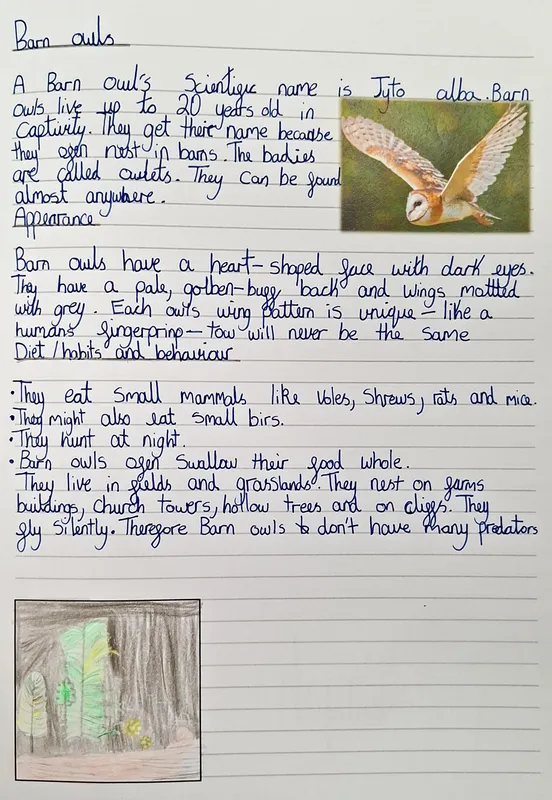 Barn owls
A Barn owl's Scientific name is Tyto alba. Barn
owls live up to 20 years old in
Captivity. They get their name because
they ofen nest in barns. The badies
are called owlets. They can be found
almost anywhere.
Appearance
Barn owls have a heart-shaped face with dark eyes.
They have a pale, golben-buff back and wings mottled
with grey. Each owls wing pattern is unique - like a
humans fingerprint - tow will never be the same
Diet / habits and behaviour
• They eat small mammals like Voles, Shrews, rats and mice.
• They might also eat small birs.
• They hunt at night.
• Barn owls ofen Swallow their food whole.
They live in fields and grasslands. They nest on farms
buildings, church towers, hollow trees and on cliffs. They
fly silently. Therefore Barn owls don't have many predators